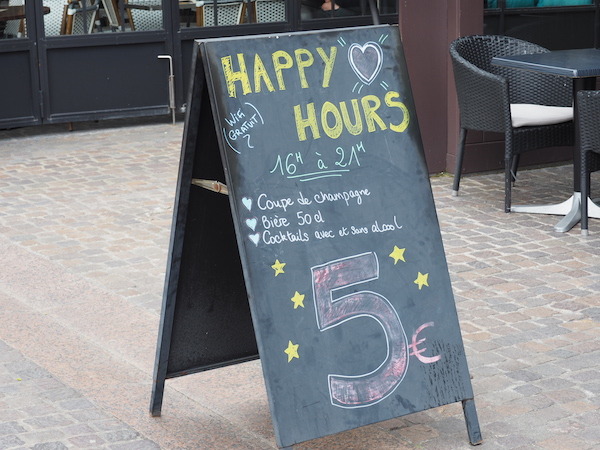 HAPPY
HOURS
WiFi
(GRATUIT)
16H à 21H
Coupe de champagne
Bière 50 cl
Cocktails avec et sans alcool
5€